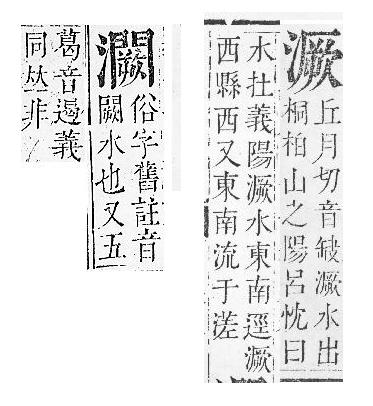 㵐
丘月切音缺㵐水出
桐柏山之陽呂忱曰
水扗義陽㵐水東南逕㵐
西縣西又東南流于溠
俗字舊註音
闕水也又五
葛音遏義
同𠀤非